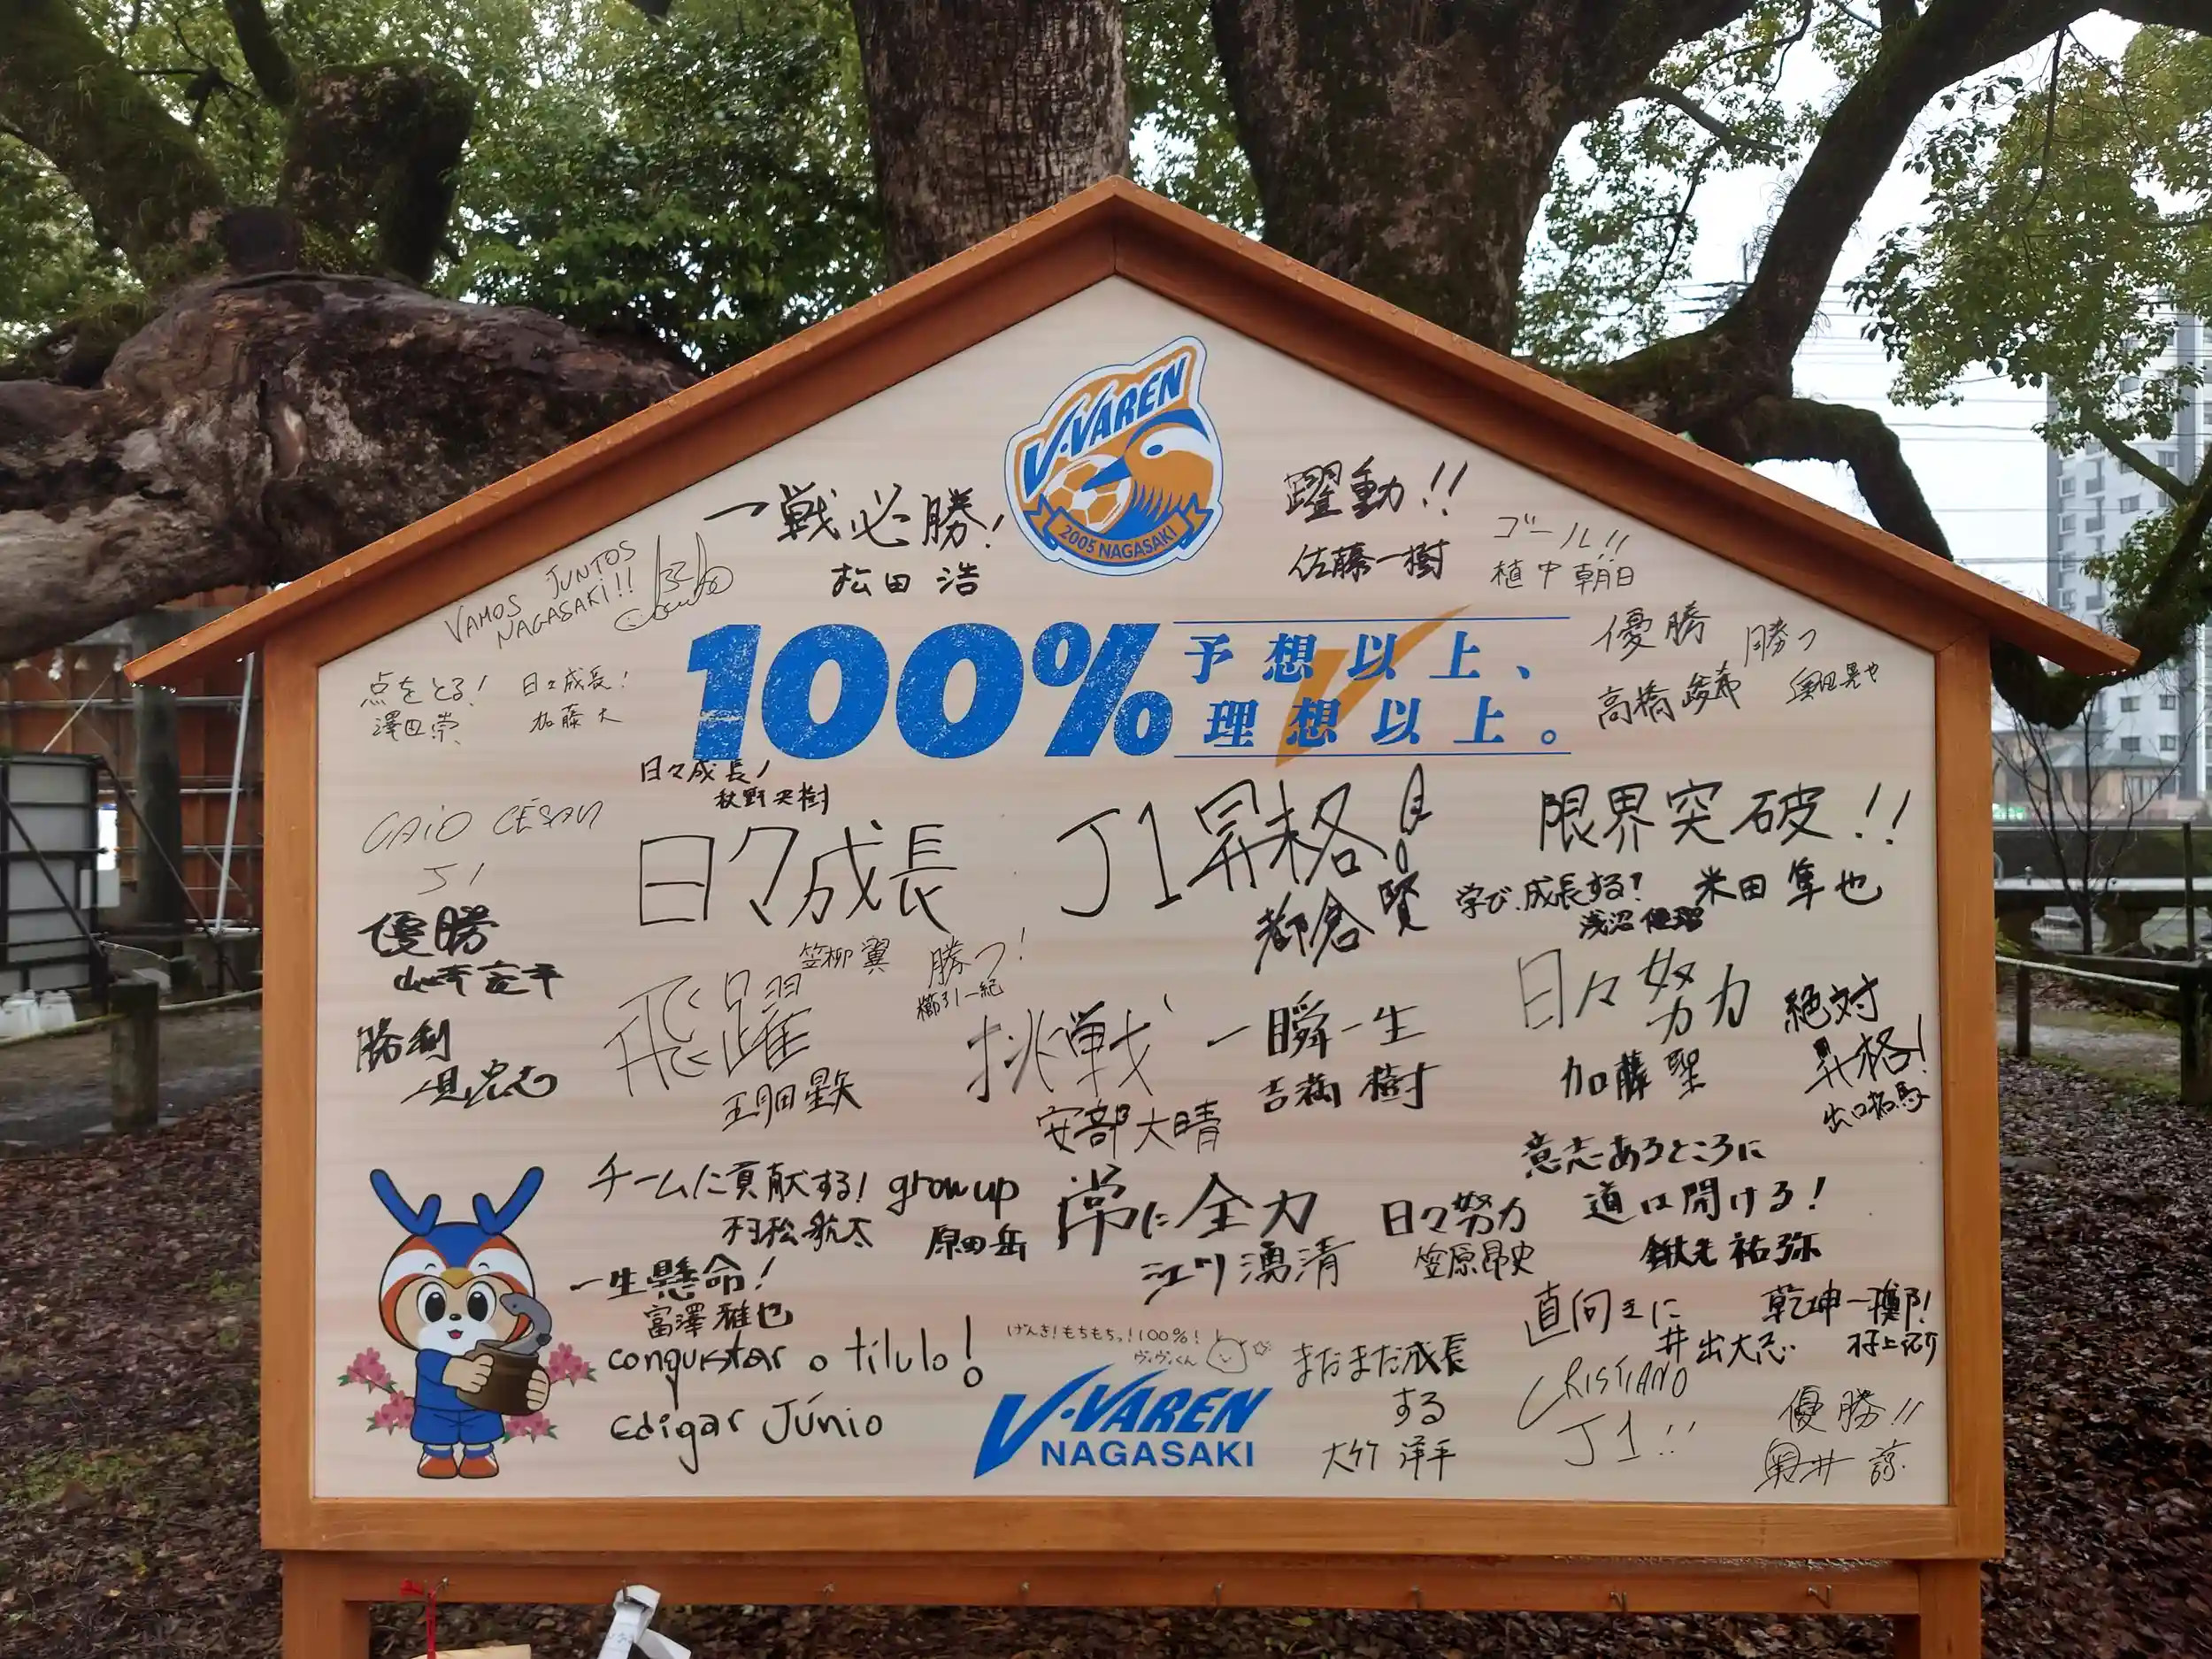 V·VAREN
2005 NAGASAKI
一戦必勝!
松田 浩
躍動!!
佐藤一樹
ゴール!!
植中朝日
VAMOS JUNTOS
NAGASAKI!!
100%
予想以上、
理想以上。
優勝
高橋峻希
勝つ
奥田晃也
点をとる!
澤田崇
日々成長!
加藤大
日々成長!
秋野央樹
CAIO CÉSAR
J1
日々成長
笠柳翼
J1昇格!
都倉賢
限界突破!!
米田隼也
学び、成長する!
浅沼優瑠
優勝
山崎亮平
勝つ!
櫛引一紀
飛躍
玉田星矢
挑戦
安部大晴
一瞬一生
吉満樹
日々努力
加藤聖
絶対
昇格!
勝利
チームに貢献する!
村松航太
grow up
原田岳
常に全力
江川湧清
日々努力
笠原昂史
意志あるところに
道は開ける!
鍬先祐弥
一生懸命!
富澤雅也
直向きに
井出大志
乾坤一擲!
conquistar o título!
Edigar Júnio
げんき!もちもちっ!100%!
ヴィヴィくん
V·VAREN
NAGASAKI
まだまだ成長
する
大竹洋平
CRISTIANO
J1!!
優勝!!
奥井諒